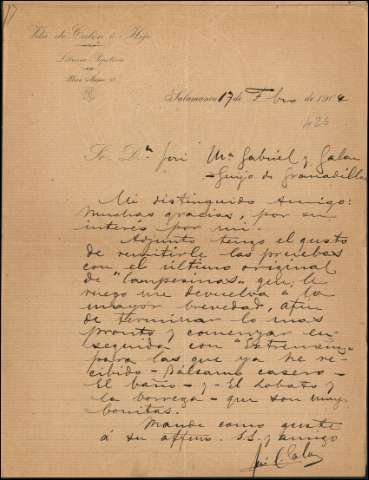 Vda. de Calón é Hijo
Librería - Papelería
Plaza Mayor
Salamanca 17 de Fbro de 1904
Sr. Dn José Mª Gabriel y Galan
- Guijo de Granadilla
Mi distinguido amigo:
Muchas gracias, por su
interés por mi.
Adjunto tengo el gusto
de remitirle las pruebas
con el último original
de "Campesinas" que le
ruego me devuelva a la
mayor brevedad, afin
de terminar lo mas
pronto y comenzar en-
seguida con "Extremeñas"
para las que ya he re-
cibido - Bálsamo casero -
El baño - y - El lobato y
la borrega - que son muy
bonitas.
Mande como guste
á su affmo. S.S. y amigo
José Calon